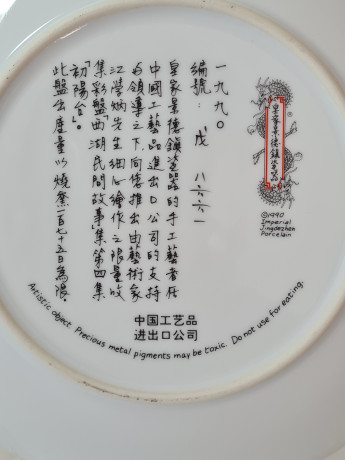 皇家景德鎮瓷器
©1990
Imperial
Jingdezhen
Porcelain
一九九〇
編號：戊 八六六一
皇家景德鎮瓷器的手工藝者在
中國工藝品進出口公司的支持
與領導之下,同僚推出由藝術家
江瑩炳先生細心繪作之限量收
集彩盤"西湖民間故事"集第四集
"初陽台"。
此盤出產量以燒窯一百七十五日為限
中国工艺品
进出口公司
Artistic object. Precious metal pigments may be toxic. Do not use for eating.